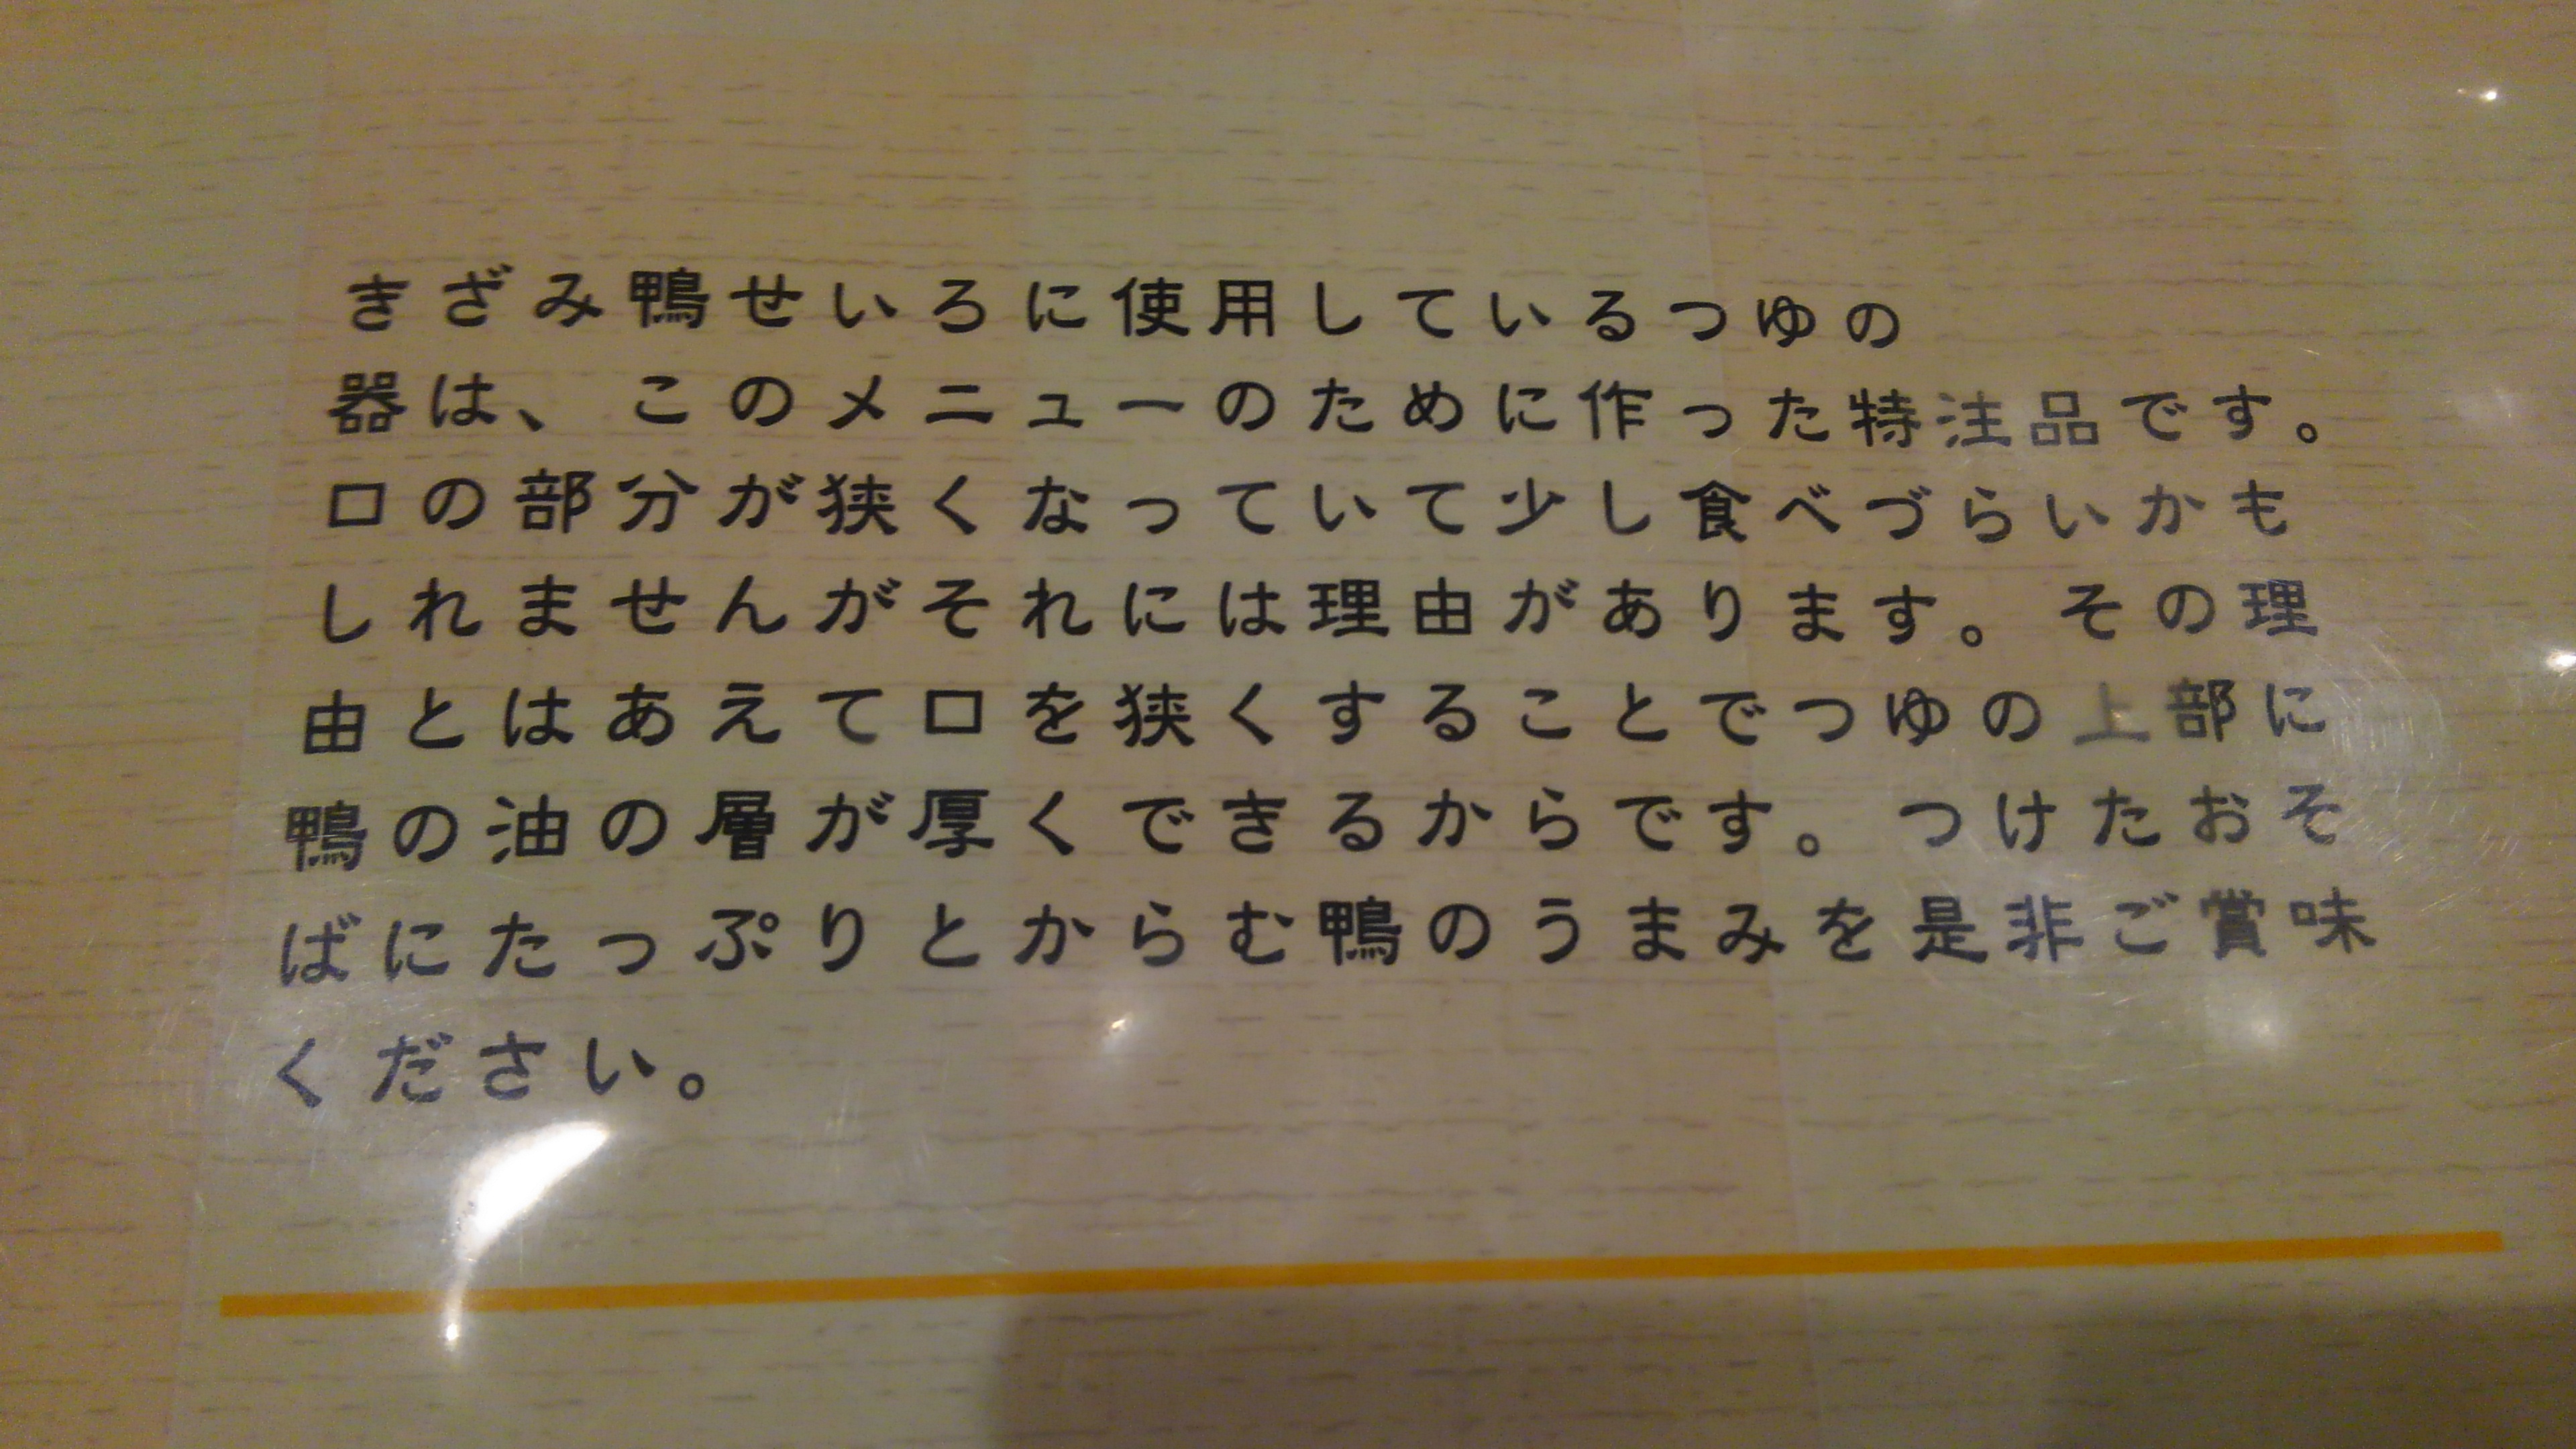 きざみ鴨せいろに使用しているつゆの
器は、このメニューのために作った特注品です。
口の部分が狭くなっていて少し食べづらいかも
しれませんがそれには理由があります。その理
由とはあえて口を狭くすることでつゆの上部に
鴨の油の層が厚くできるからです。つけたおそ
ばにたっぷりとからむ鴨のうまみを是非ご賞味
ください。